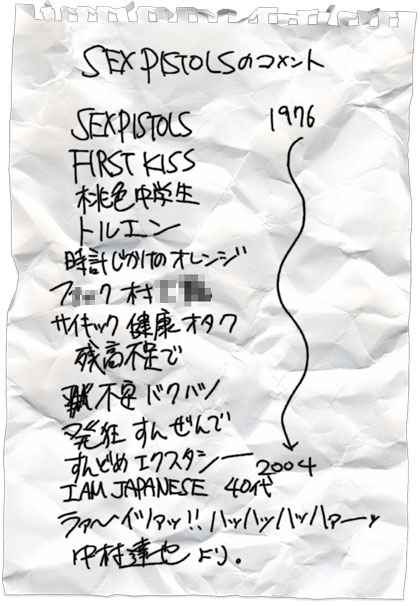 SEX PISTOLSのコメント
SEXPISTOLS 1976
FIRST KISS
桃色中学生
トルエン
時計じかけのオレンジ
村
サイキック 健康オタク
残高不足で
不安 バクバク
発狂 すんぜんで
すんどめ エクスタシー 2004
I AM JAPANESE 40代
ラァ〜イツァッ!! ハッハッハッハァーッ
中村達也 より。